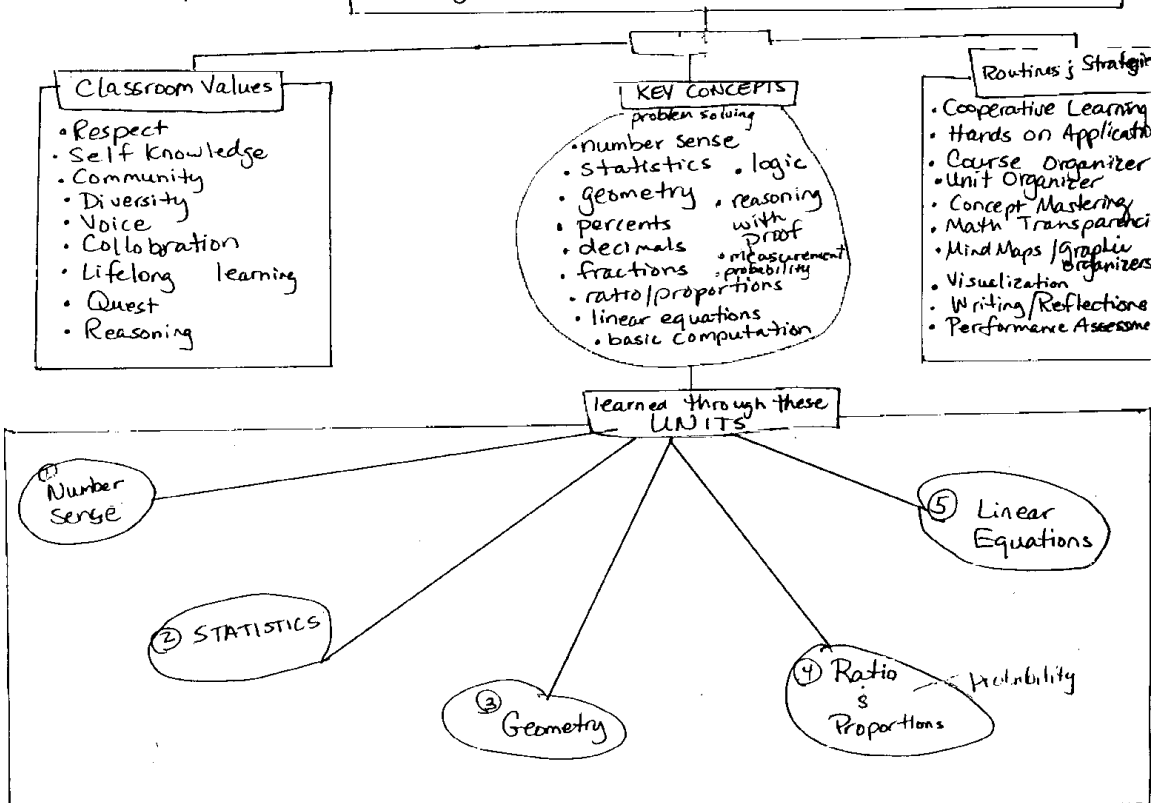 Classroom Values
• Respect
• Self Knowledge
• Community
• Diversity
• Voice
• Collobration
• Lifelong learning
• Quest
• Reasoning
KEY CONCEPTS
problem solving
• number sense
• statistics • logic
• geometry • reasoning
• percents with
proof
• decimals • measurement
• fractions • probability
• ratio/proportions
• linear equations
• basic computation
Routines & Strategie
• Cooperative Learning
• Hands on Applicatio
• Course Organizer
• Unit Organizer
• Concept Mastering
• Math Transparenci
• Mind Maps / Graphic
organizers
• Visualization
• Writing/Reflections
• Performance Assessme
learned through these
UNITS
① Number
Sense
② STATISTICS
③ Geometry
④ Ratio
&
Proportions
Probability
⑤ Linear
Equations